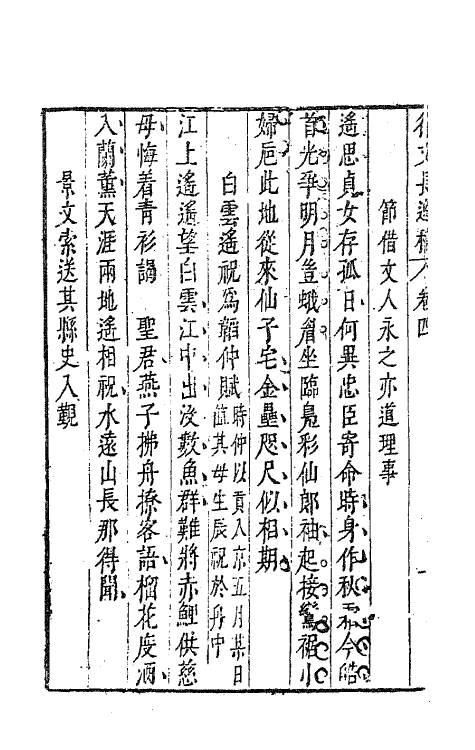 徐文長逸稿 卷四
節借文人永之亦道理事
遥思貞女存孤日何異忠臣寄命時身作秋霜今皓
首光爭明月豈蛾眉坐臨鳧彩仙郎袖起接鸞裾小
婦巵此地從來仙子宅金壘咫尺似相期
白雲遥祝爲賴仲賦時仲以貢入京五月某日値其母生辰祝於舟中
江上遥遥望白雲江中出沒數魚群難將赤鯉供慈
母悔着青衫謁 聖君燕子拂舟撩客語榴花度酒
入蘭薰天涯兩地遥相祝水遠山長那得聞
景文索送其縣史入覲